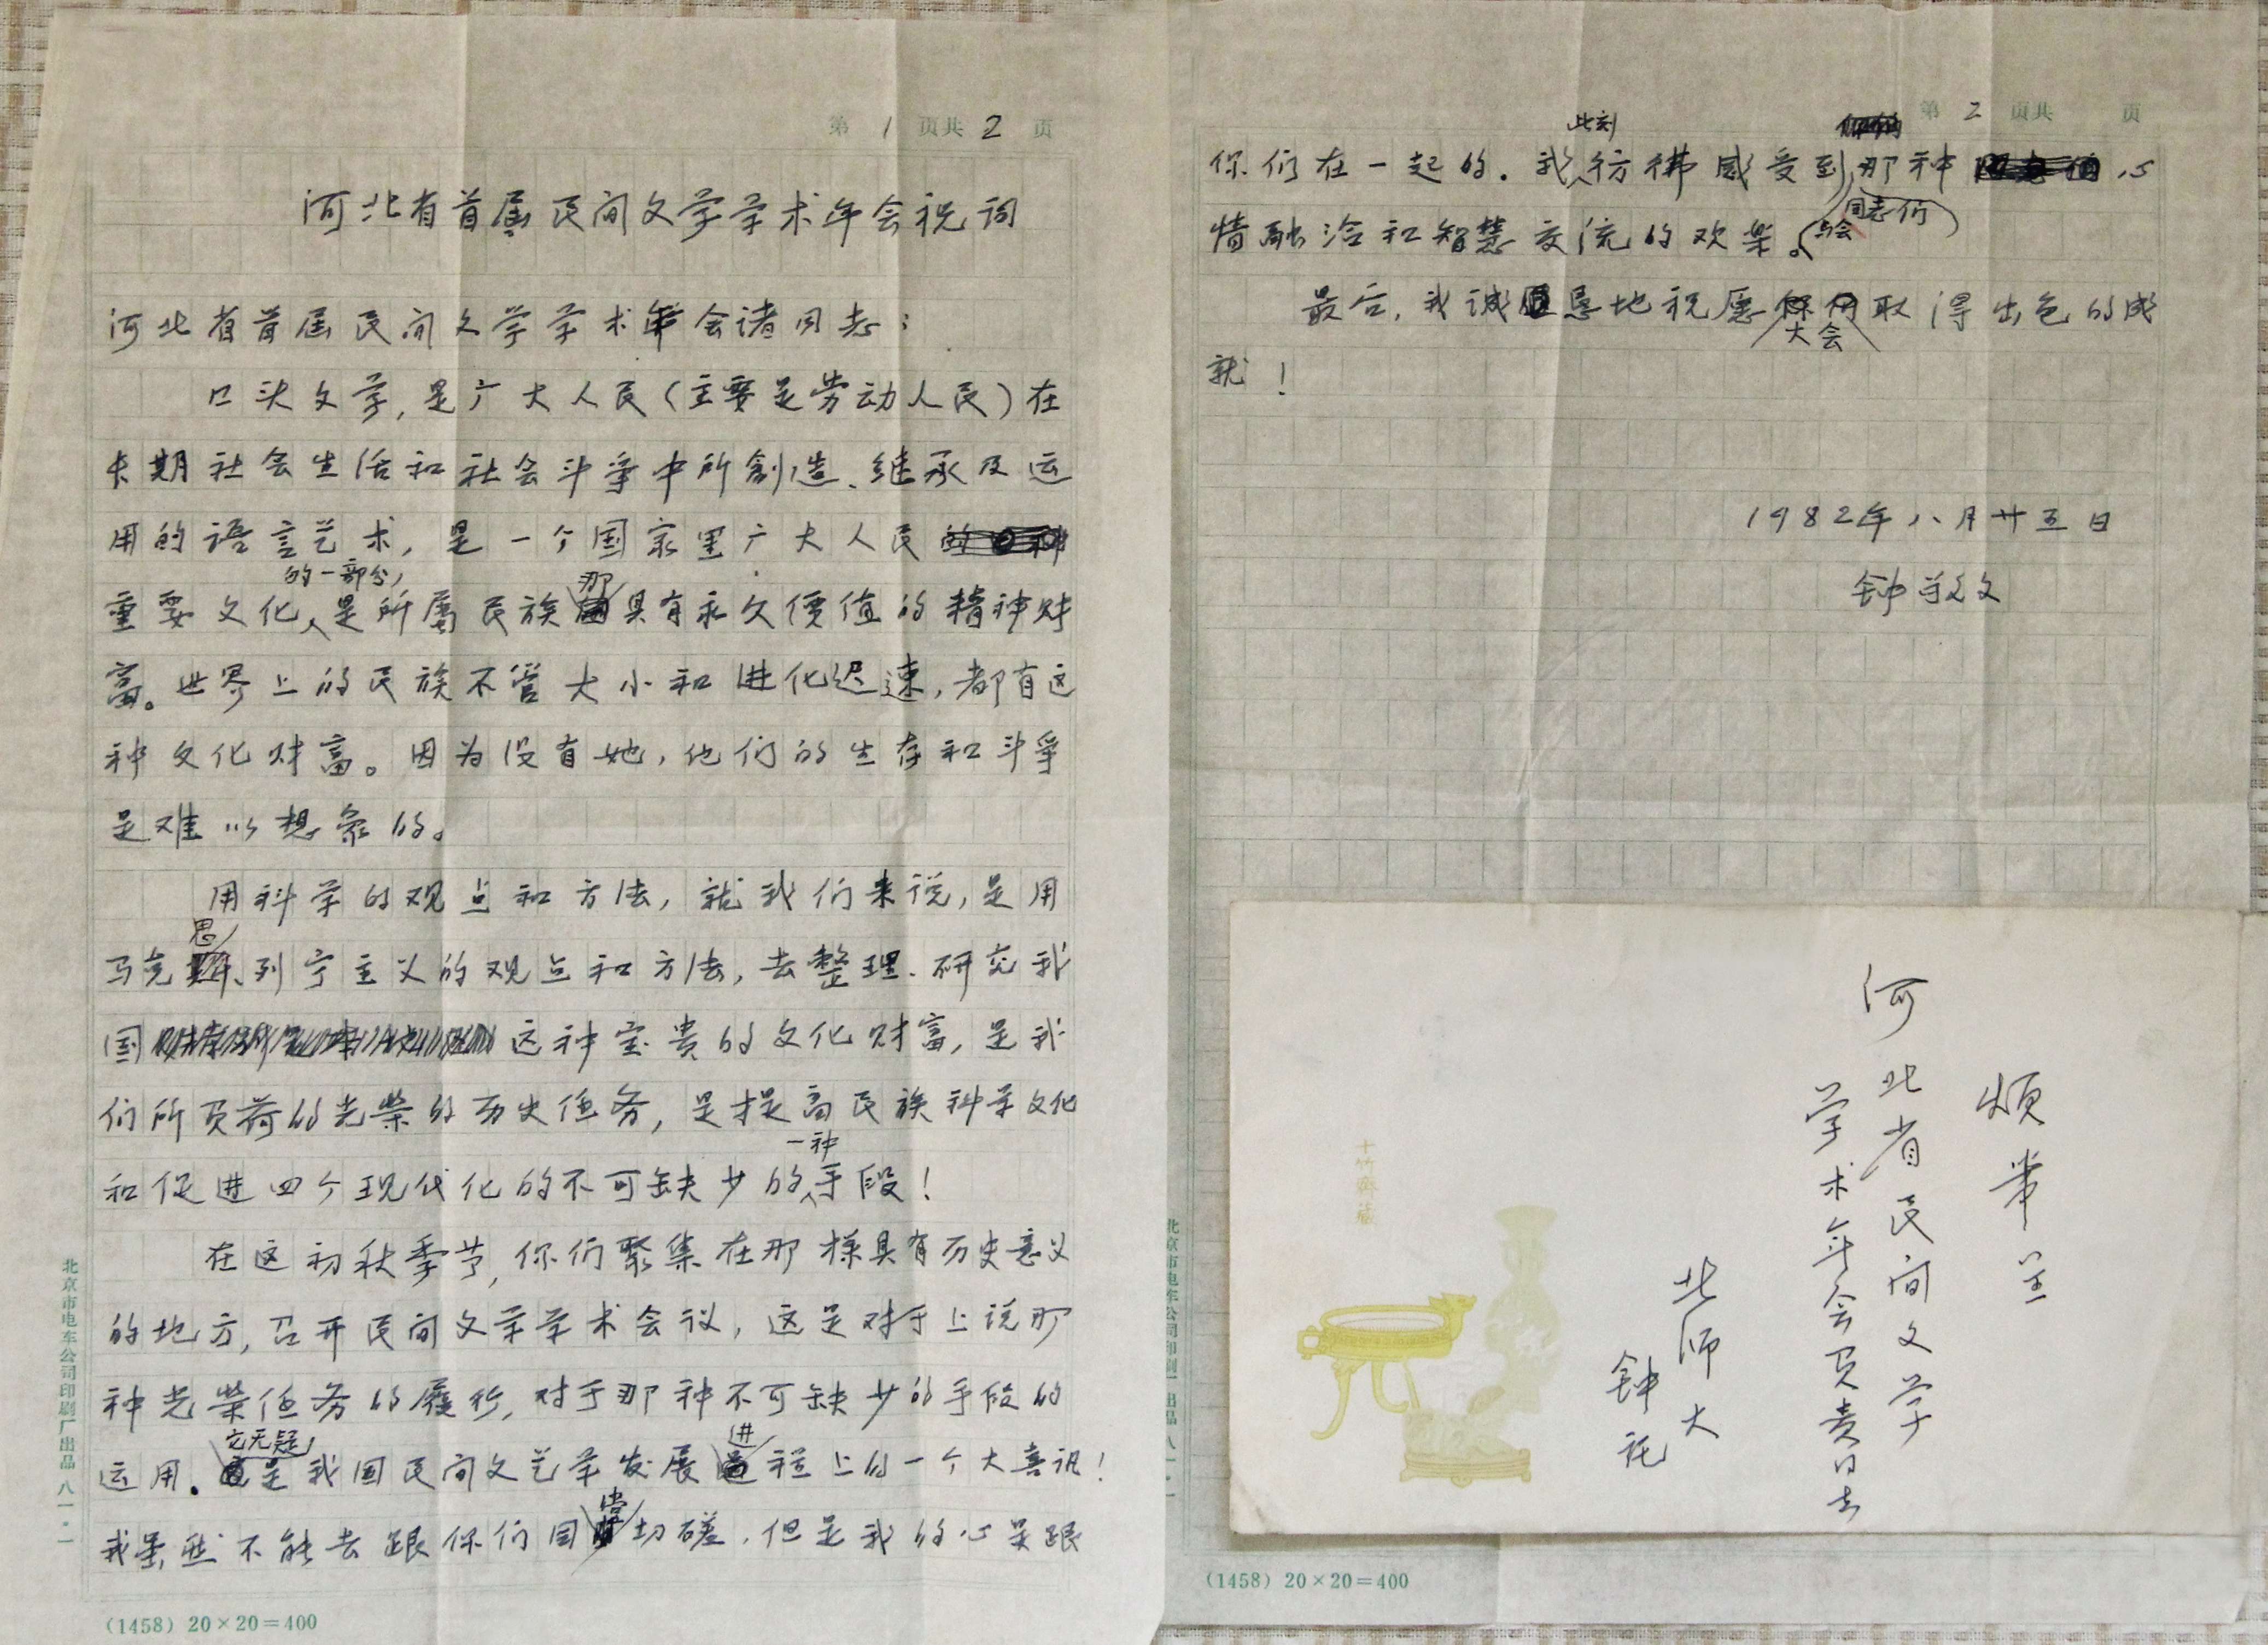 第 1 页共 2 页
河北省首届民间文学学术年会祝词
河北省首届民间文学学术年会诸同志：
口头文学，是广大人民（主要是劳动人民）在
长期社会生活和社会斗争中所创造、继承及运
用的语言艺术，是一个国家里广大人民
重要文化的一部分，是所属民族那具有永久價值的精神财
富。世界上的民族不管大小和进化迟速，都有这
种文化财富。因为没有她，他们的生存和斗争
是难以想象的。
用科学的观点和方法，就我们来说，是用
马克思、列宁主义的观点和方法，去整理、研究我
国这种宝贵的文化财富，是我
们所负荷的光荣的历史任务，是提高民族科学文化
和促进四个现代化的不可缺少的一种手段！
在这初秋季节，你们聚集在那样具有历史意义
的地方，召开民间文学学术会议，这是对于上说那
种光荣任务的履行，对于那种不可缺少的手段的
运用。它无疑是我国民间文艺学发展进程上的一个大喜讯！
我虽然不能去跟你们同堂切磋，但是我的心是跟
北京市电车公司印刷厂出品 八一·一
(1458) 20×20=400
第 2 页共 页
你们在一起的。我此刻彷彿感受到与会同志们那种心
情融洽和智慧交流的欢乐。
最后，我诚恳地祝愿大会取得出色的成
就！
1982年八月廿五日
钟敬文
烦带呈
河北省民间文学
学术年会负责同志
北师大
钟托
十竹斋藏
北京市电车公司印刷厂出品 八一·一
(1458) 20×20=400